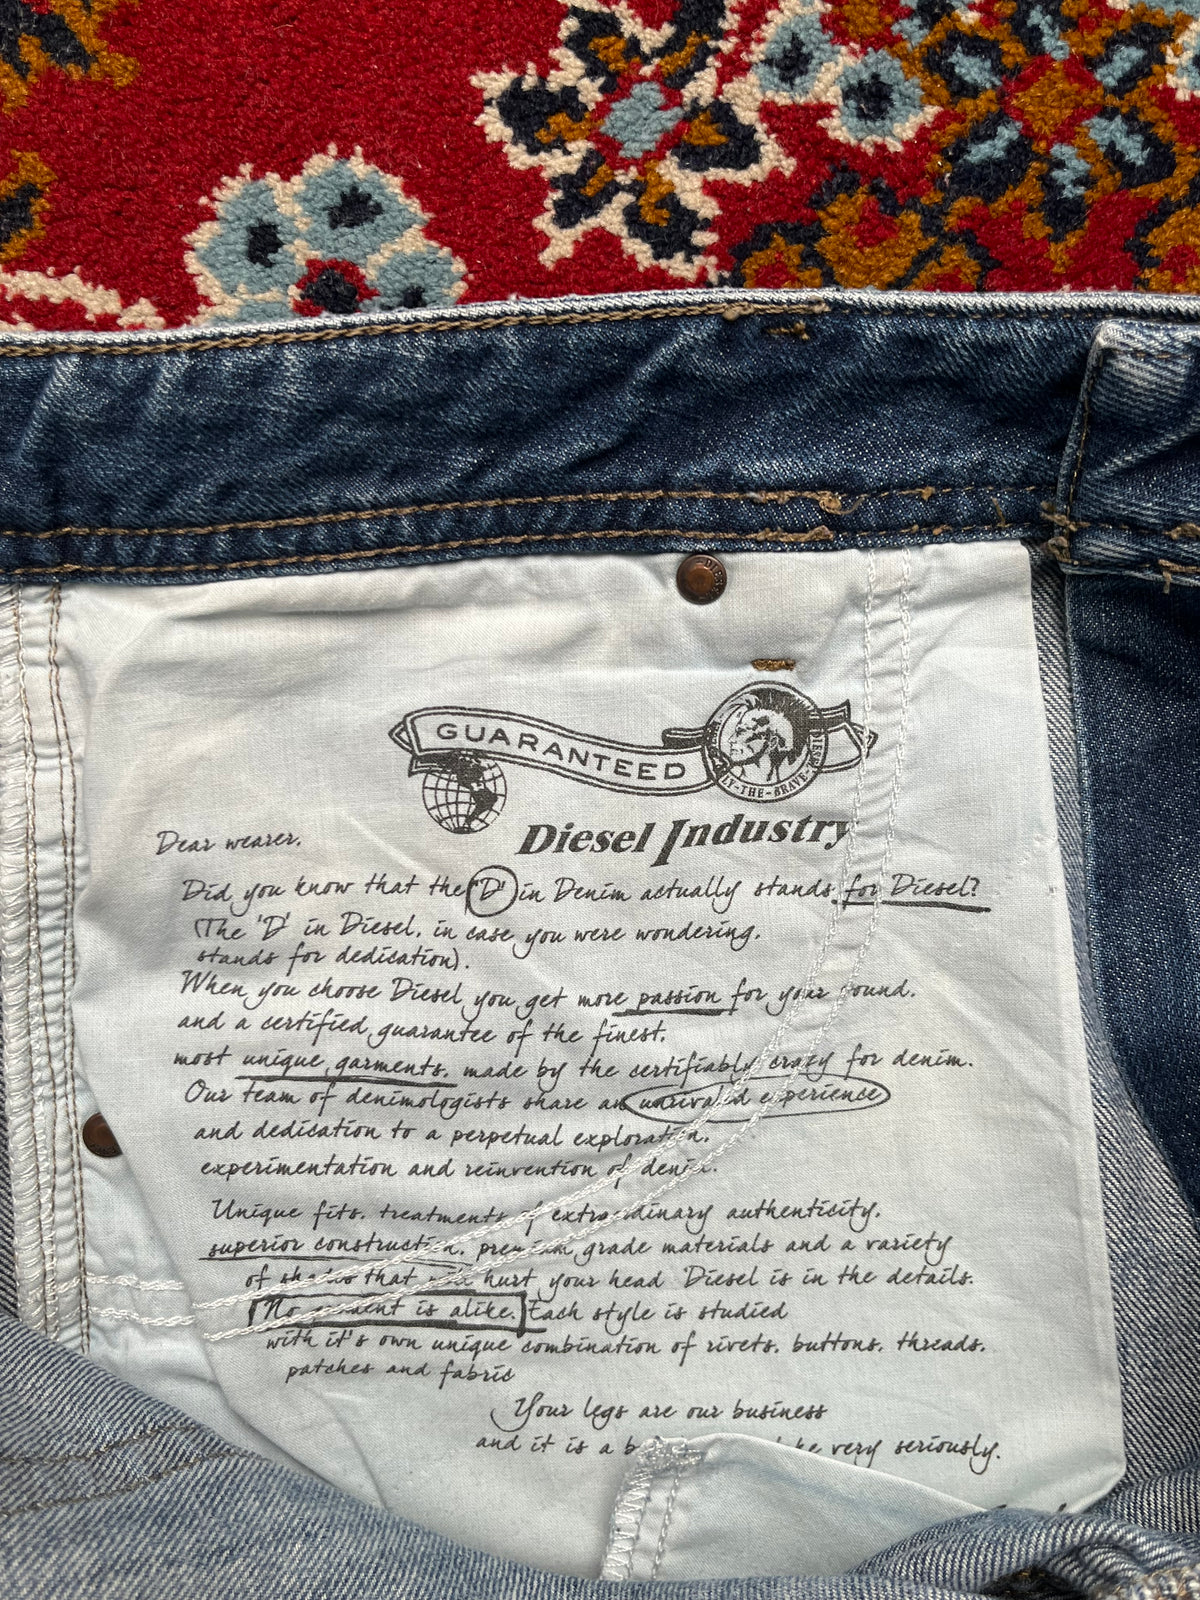 DIESEL
GUARANTEED
LY-THE-BRAVE
DIESEL
Diesel Industry
Dear wearer.
Did you know that the 'D' in Denim actually stands for Diesel?
(The 'D' in Diesel, in case you were wondering,
stands for dedication).
When you choose Diesel you get more passion for your
and a certified guarantee of the finest,
most unique garments, made by the certifiably crazy for denim.
Our team of denimologists share an unrivaled experience
and dedication to a perpetual exploration,
experimentation and reinvention of denim.
Unique fits, treatments of extraordinary authenticity,
superior construction, premium grade materials and a variety
of shades that will hurt your head Diesel is in the details.
No is alike. Each style is studied
with it's own unique combination of rivets, buttons, threads,
patches and fabric
Your legs are our business
and it is a very seriously.